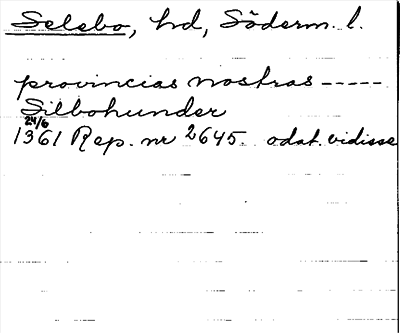 Selebo, hd, Söderm. l.
provincias nostras -----
Silbohunder
24/6
1361 Rep. nr 2645. odat. vidisse